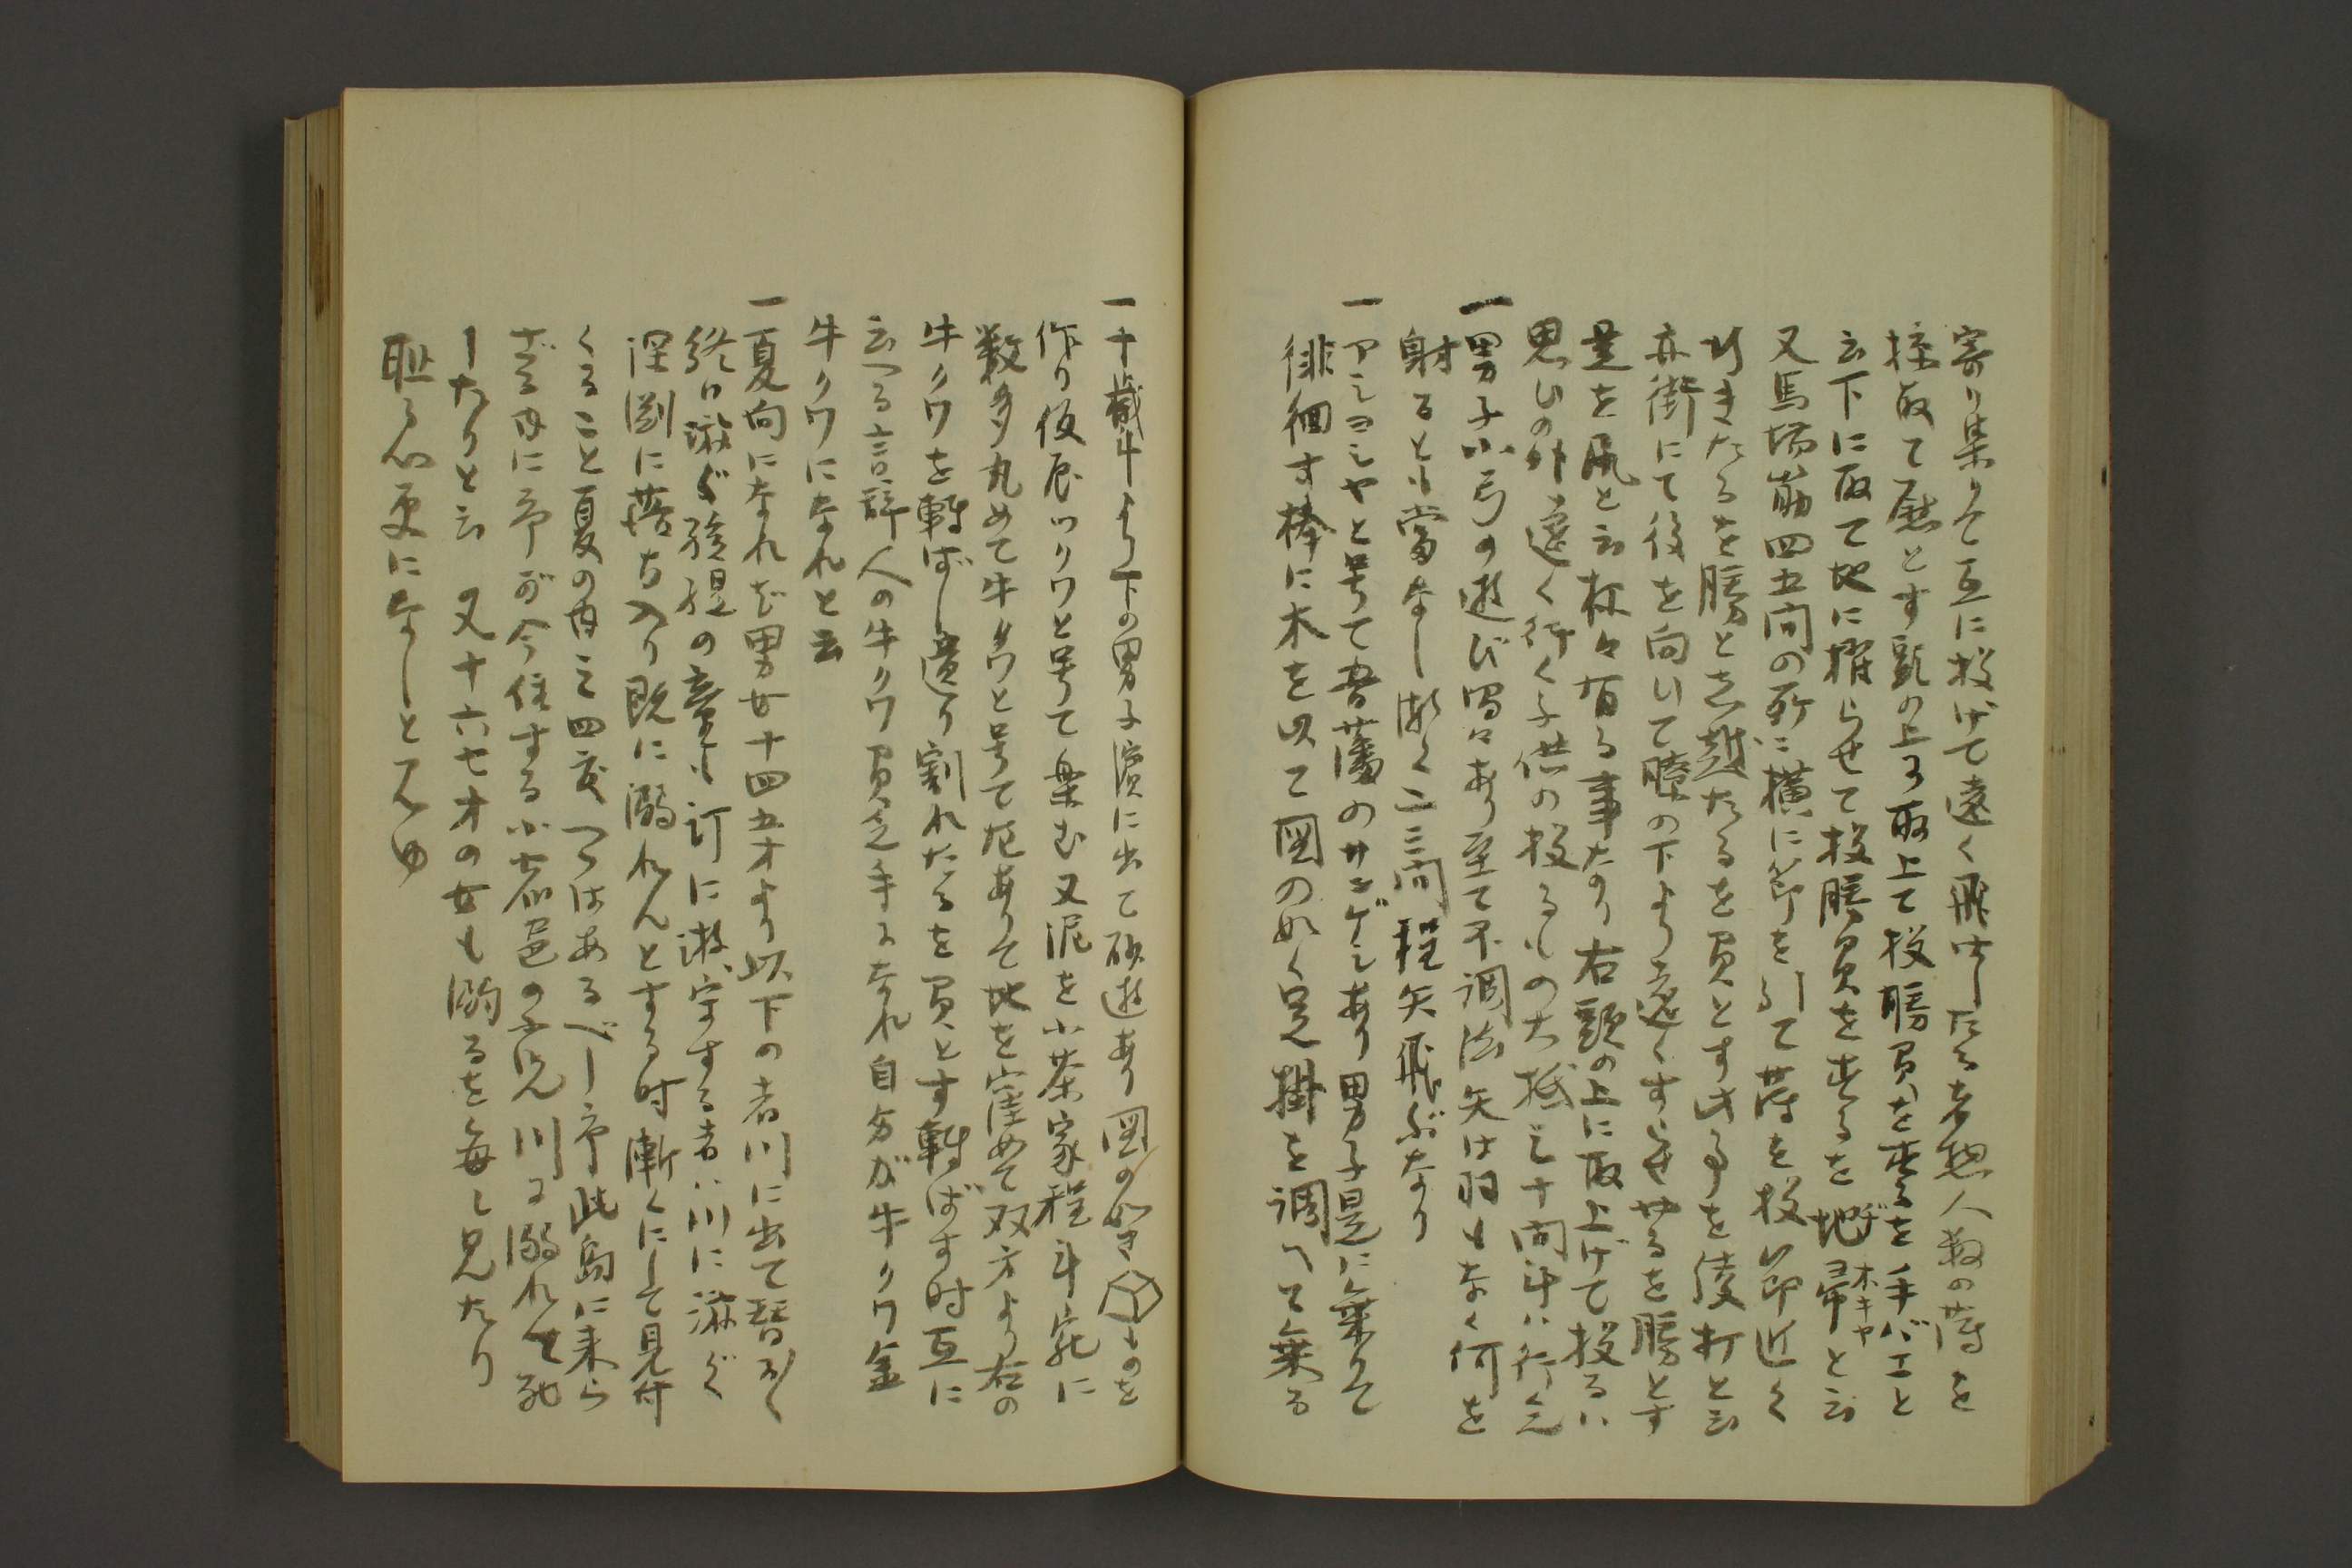 寄り集りて互に投げて遠く飛はしたる者惣人数の薄を
採取て慰とす頭の上え取上て投勝負を幸るを手バエと
云下に取て地に摺らせて投勝負を幸るを地ヂヨ帚ホキヤと云
又馬場筋四五間の所に横に節を引て薄を投い節近く
行きたるを勝とし越たるを負とす此る事を後打と云
亦街にて後を向いて膝の下より遠くすらせやるを勝とす
是を風と云様々有る事なり右頭の上に取上げて投るハ
思ひの外遠く行く子供の投るもの大抵三十間斗ハ行也
一男子小弓の遊び罷々あり至て不調法矢は羽もなく何を
射ると当なし漸く二三間程矢飛ぶなり
一アシヨシヤと号て吾藩のサンゲシあり男子是に乗りて
徘徊す棒に木を以て図の如く足掛を調へて乗る
一十歳斗より下の男子濱に出て砂遊あり図の如きものを
作り仮屋ツクワと号て楽む又泥を小茶家程斗宛に
数多丸めて牛クワと号て厄ありて地を窪めて双方より右の
牛クワを轉ばし遣り割れたるを負とす轉ばす時互に
云へる言辞人の牛クワ負乞手になれ自分が牛クワ金
牛クワになれと云
一夏向になれば男女十四五才より以下の者川に出て暫らく
終日游ぐ孩提の童も訂に游字する者ハ川に游ぐ
深淵に落ち入り既に溺れんとする時漸くにして見付
くること夏の内三四度つゝはあるべし予此島に来ら
ざる内に予が今住する小宿邑の子児川に溺れて死
したりと云 又十六七才の女も溺るを毎々見たり
耻る心更になしと見ゆ